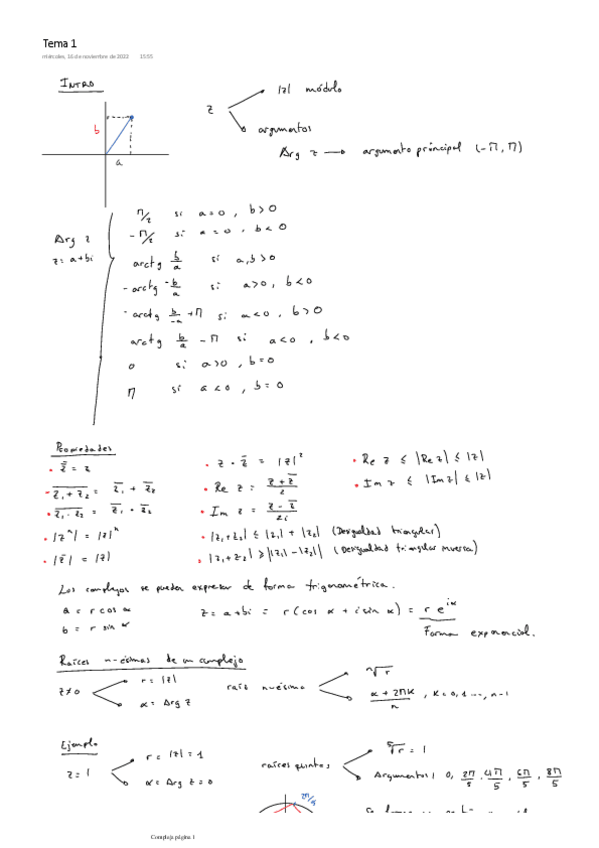 Tema 1
miércoles, 16 de noviembre de 2022 15:55
INTRO
z
|z| módulo
argumentos
Arg z → argumento principal (-π, π)
b
a
Arg z
z = a+bi
π/2 si a=0, b>0
-π/2 si a=0, b<0
arctg b/a si a,b>0
-arctg -b/a si a>0, b<0
-arctg b/-a +π si a<0, b>0
arctg b/a - π si a<0, b<0
0 si a>0, b=0
π si a<0, b=0
Propiedades
• z̿ = z
• z · z̅ = |z|²
• Re z ≤ |Re z| ≤ |z|
• \overline{z₁+z₂} = z̅₁ + z̅₂
• Re z = (z+z̅)/2
• Im z ≤ |Im z| ≤ |z|
• \overline{z₁·z₂} = z̅₁ · z̅₂
• Im z = (z-z̅)/2i
• |zⁿ| = |z|ⁿ
• |z₁+z₂| ≤ |z₁| + |z₂| (Desigualdad triangular)
• |z̅| = |z|
• |z₁+z₂| ≥ ||z₁|-|z₂|| (Desigualdad triangular inversa)
Los complejos se pueden expresar de forma trigonométrica.
a = r cos α
z = a+bi = r(cos α + i sin α) = r e^{iα}
b = r sin α
Forma exponencial.
Raíces n-ésimas de un complejo
z≠0
r = |z|
α = Arg z
raís nuésima
ⁿ√r
(α + 2πK)/n, K=0,1 ..., n-1
Ejemplo
z = 1
r = |z| = 1
α = Arg z = 0
raíces quintas
⁵√r = 1
Argumentos: 0, 2π/5, 4π/5, 6π/5, 8π/5
2π/5
Compleja página 1